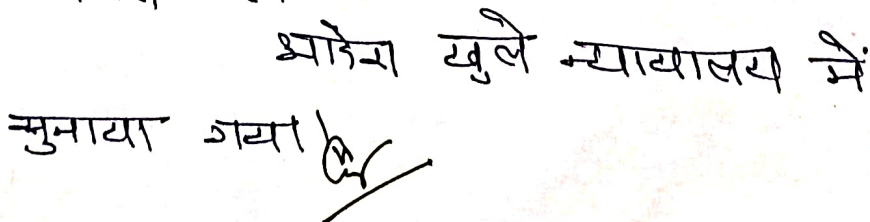 आदेश खुले न्यायालय में
सुनाया गया।